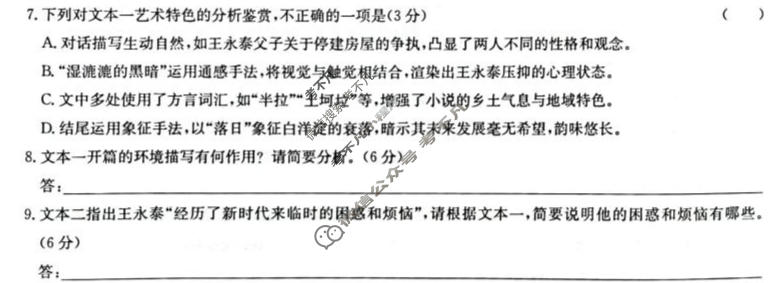 7. 下列对文本一艺术特色的分析鉴赏,不正确的一项是(3分) ( )
A. 对话描写生动自然,如王永泰父子关于停建房屋的争执,凸显了两人不同的性格和观念。
B. “湿漉漉的黑暗”运用通感手法,将视觉与触觉相结合,渲染出王永泰压抑的心理状态。
C. 文中多处使用了方言词汇,如“半拉”“土坷垃”等,增强了小说的乡土气息与地域特色。
D. 结尾运用象征手法,以“落日”象征白洋淀的衰落,暗示其未来发展毫无希望,韵味悠长。
8. 文本一开篇的环境描写有何作用? 请简要分析。(6分)
答:
9. 文本二指出王永泰“经历了新时代来临时的困惑和烦恼”,请根据文本一,简要说明他的困惑和烦恼有哪些。
(6分)
答:
微信公众号 考不凡